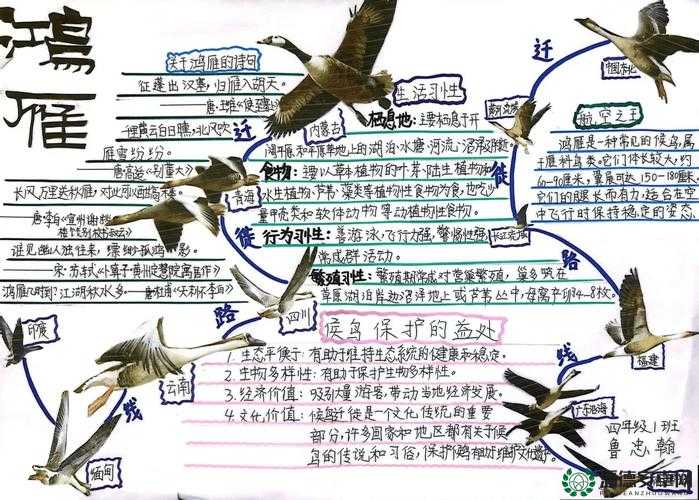 鸿雁
关于鸿雁的诗句
征蓬出汉塞，归雁入胡天。
——唐·王维《使至塞上》
千里黄云白日曛，北风吹
雁雪纷纷。
——唐·高适《别董大》
长风万里送秋雁，对此可以酣高楼。
——唐·李白《宣州谢朓楼饯别校书叔云》
谁见幽人独往来，缥缈孤鸿影。
——宋·苏轼《卜算子·黄州定慧院寓居作》
鸿雁几时到？江湖秋水多。——唐·杜甫《天末怀李白》
迁徙路线
内蒙古
青海
四川
云南
印度
缅甸
生活习性
栖息地：主要栖息于开
阔平原和平原草地上的湖泊、水塘、河流、沼泽
食物：主要以草本植物的叶、芽、陆生植物和
水生植物、芦苇、藻类等植物性食物为食，也吃少
量甲壳类和软体动物等动植物性食物。
行为习性：善游泳，飞行力强，警惕性强，
常成群活动。
繁殖习性：繁殖期常成对营巢繁殖，巢多筑在
草原湖泊岸边沼泽地上或芦苇丛中，每窝产卵4-8枚。
迁徙路线
中国东北
长江流域
福建
广东沿海
航空之王
鸿雁是一种常见的候鸟，属
于雁科鸟类。它们体长较大，约
60-90厘米，翼展可达150-180厘米。
它们的腿长而有力，适合在空
中飞行时保持稳定的姿态
候鸟保护的益处
1. 生态平衡：有助于维持生态系统的健康和稳定。
2. 生物多样性：有助于保护生物多样性。
3. 经济价值：吸引大量游客，带动当地经济发展。
4. 文化价值：候鸟迁徙是一个文化传统的重要
部分，许多国家和地区都有关于候
鸟的传说和习俗，保护
四年级1班
鲁忠翰